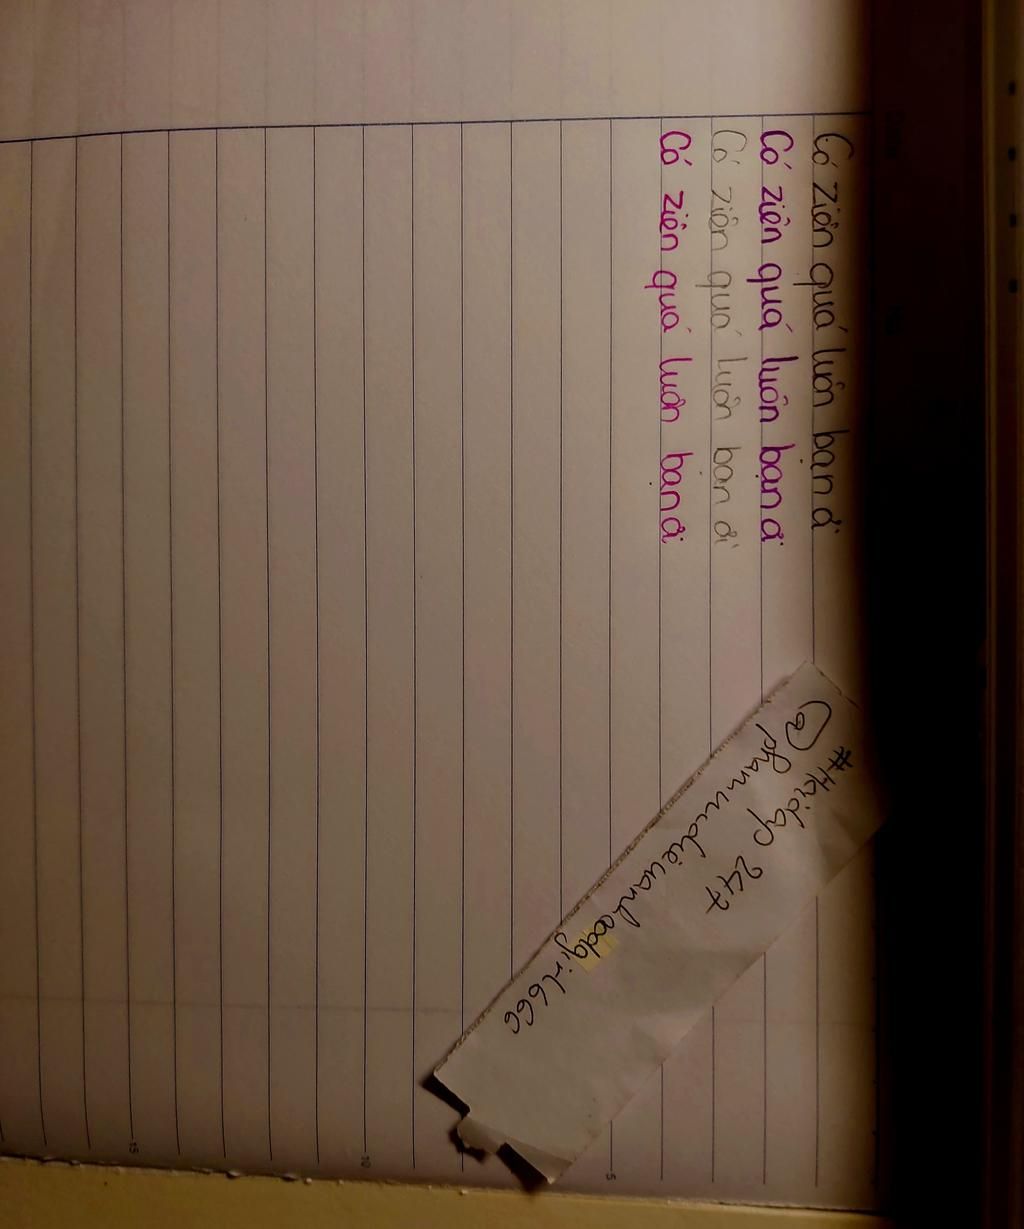 Có ziên quá luôn bạn ơi
Có ziên quá luôn bạn ơi
Có ziên quá luôn bạn ơi
Có ziên quá luôn bạn ơi
#Hoidap 247
5
10
15